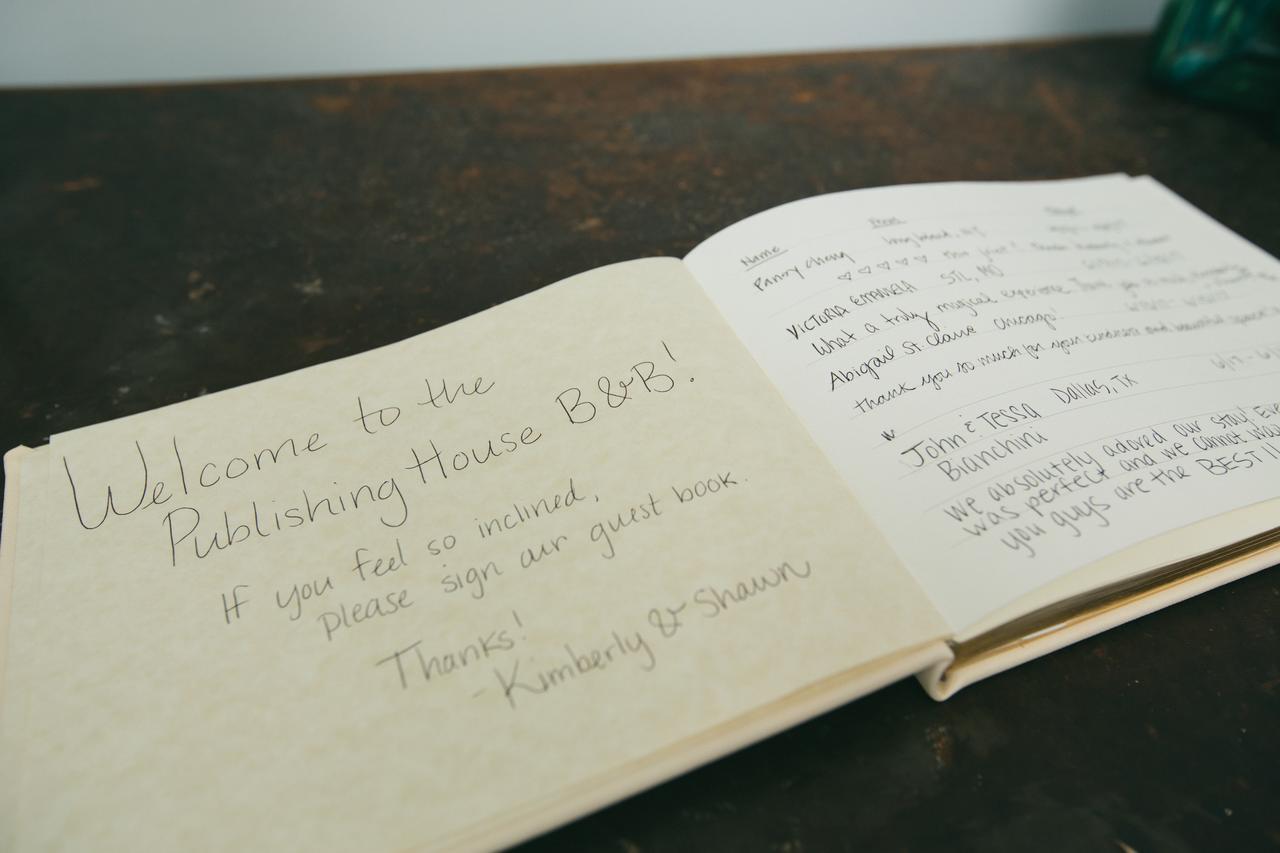 Welcome to the
Publishing House B&B!
If you feel so inclined,
please sign our guest book.
Thanks!
-Kimberly & Shawn
Name From
♡ ♡ ♡ ♡ ♡
VICTORIA STL, MO
What a truly magical experience. Thank you
Abigail St. Claire Chicago!
thank you so much for your kindness and beautiful space!
John & Tessa Dallas, TX
Bianchini
we absolutely adored our stay! Eve
was perfect and we cannot wai
you guys are the BEST!!